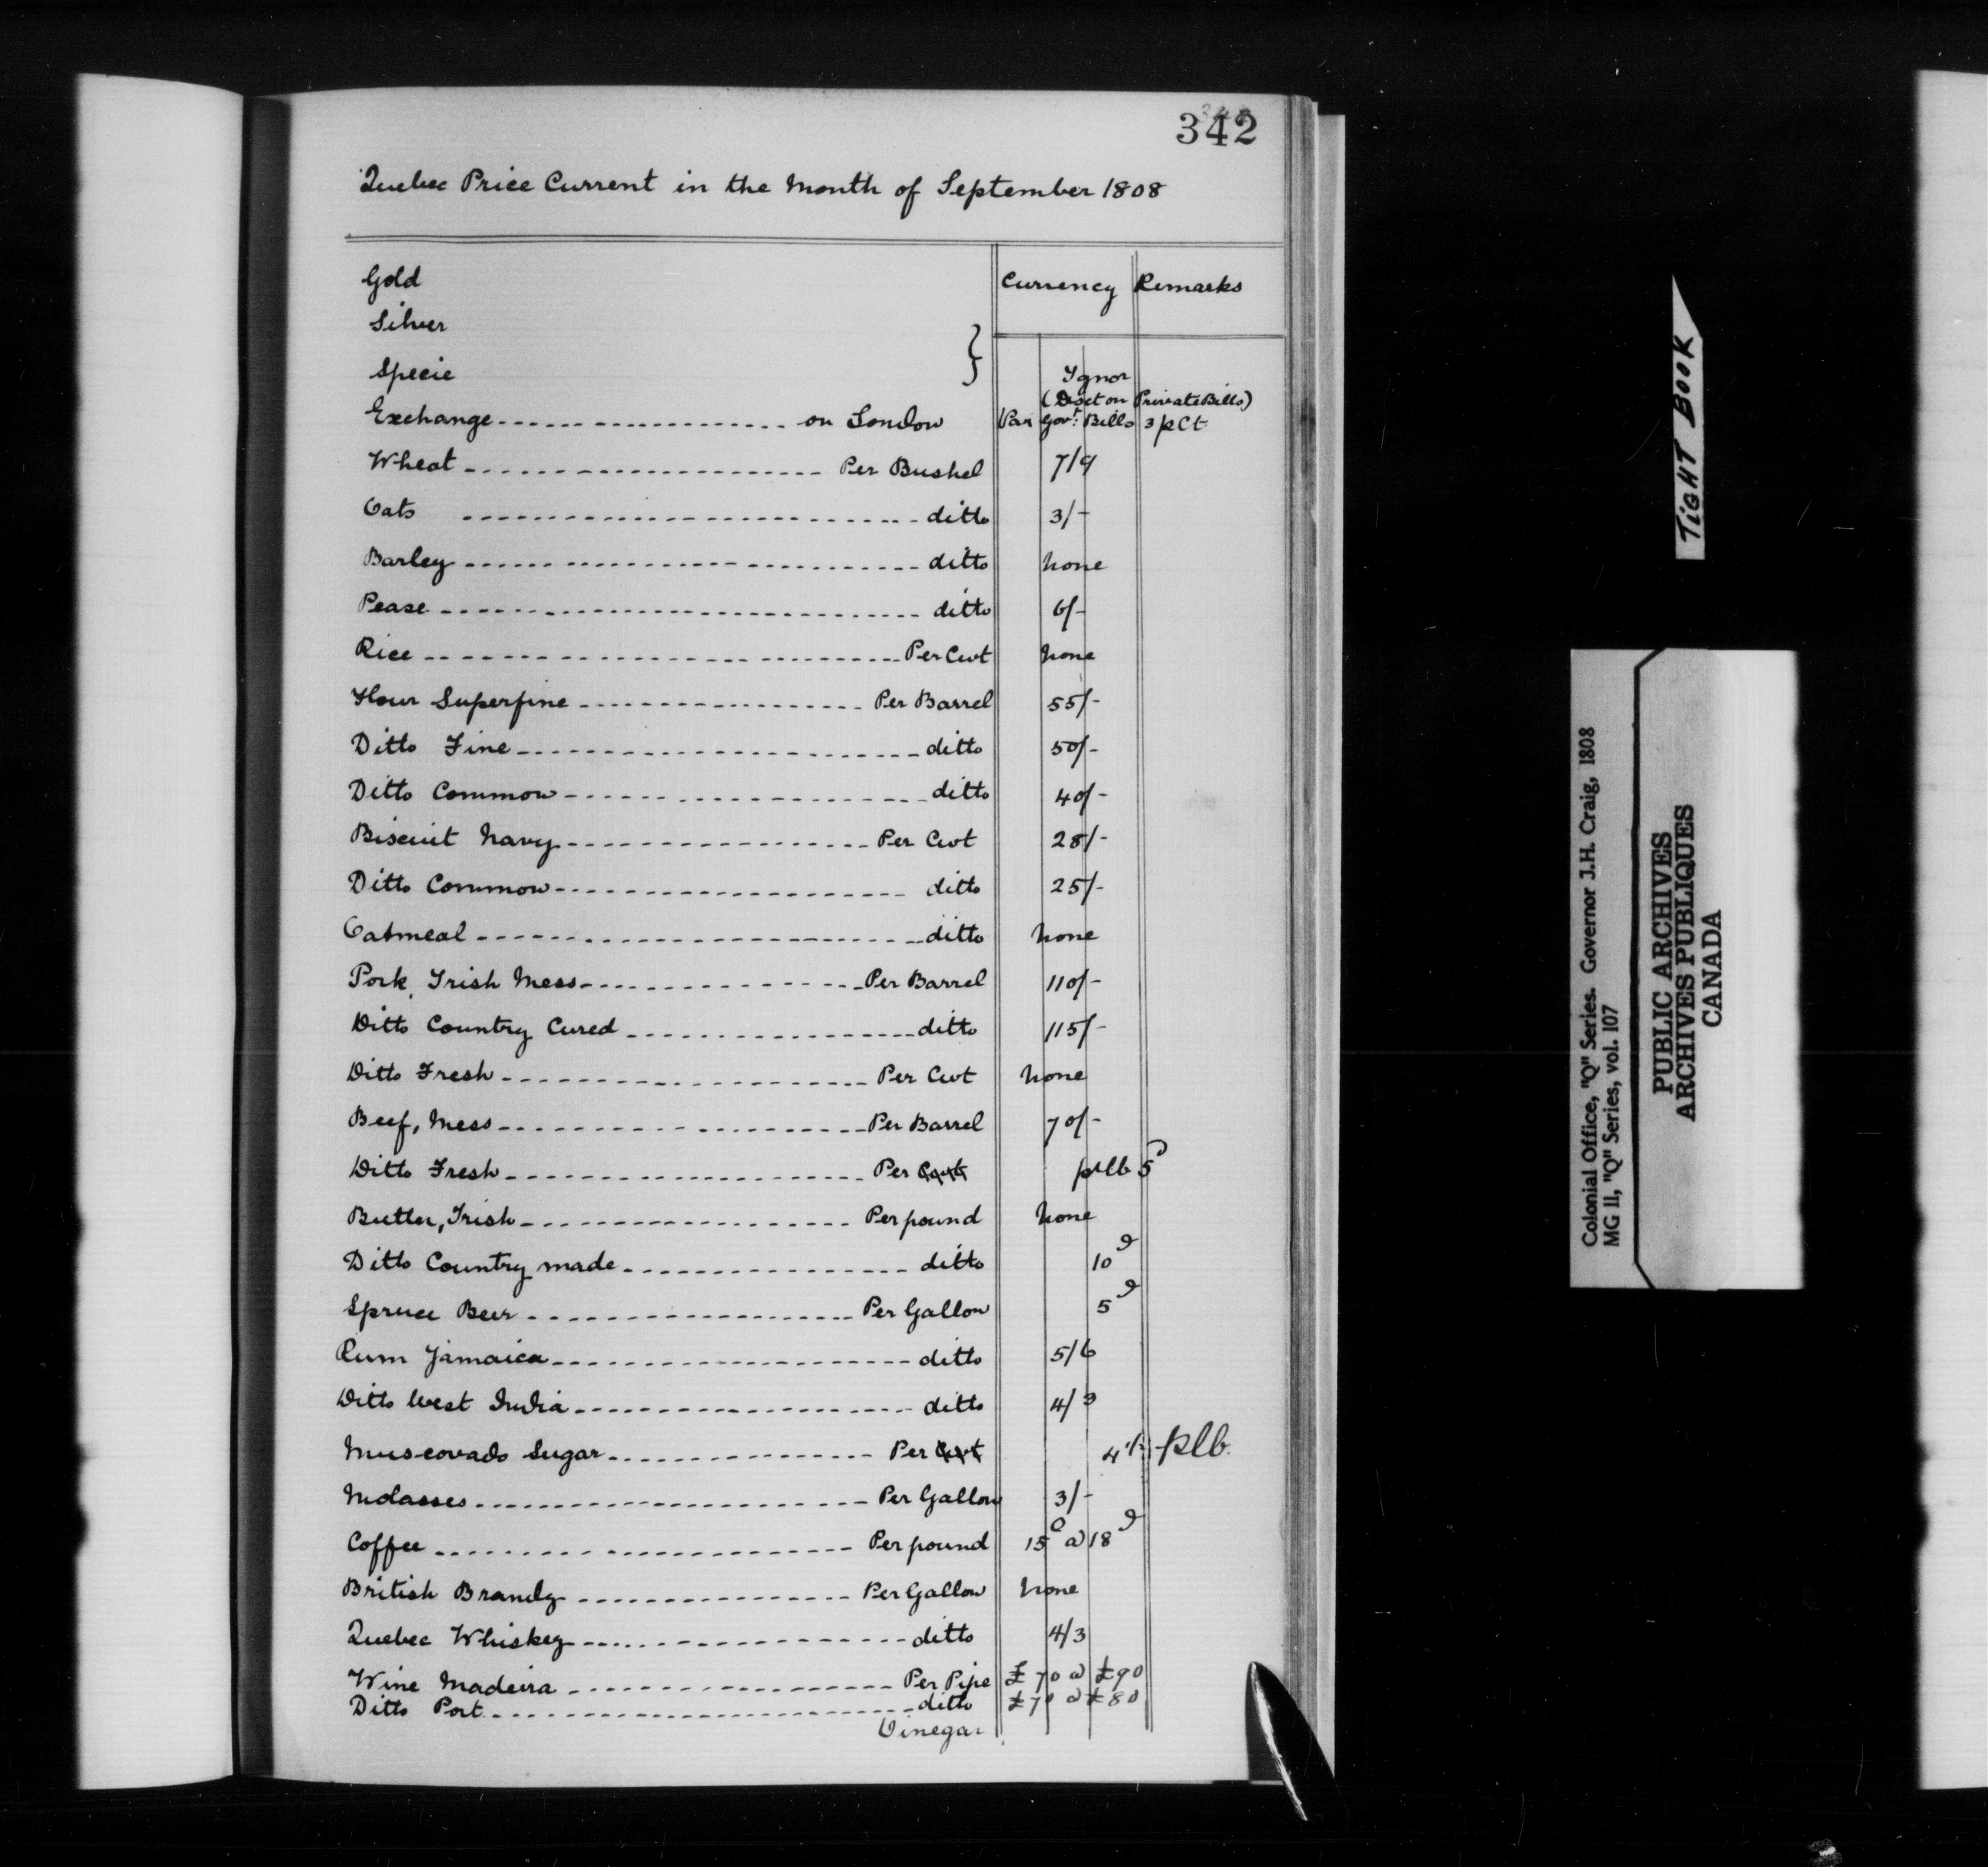 342
Quebec Price Current in the Month of September 1808
Currency Remarks
Gold
Silver
Specie } Ignor
(Disct on Private Bills)
Exchange on London (Par Govt. Bills 3 p Ct
Wheat Per Bushel 7/9
Oats ditto 3/-
Barley ditto none
Pease ditto 6/-
Rice Per Cwt none
Flour Superfine Per Barrel 55/-
Ditto Fine ditto 50/-
Ditto Common ditto 40/-
Biscuit Navy Per Cwt 28/-
Ditto Common ditto 25/-
Oatmeal ditto none
Pork, Irish Mess Per Barrel 110/-
Ditto Country Cured ditto 115/-
Ditto Fresh Per Cwt none
Beef, Mess Per Barrel 70/-
Ditto Fresh Per Cwt p lb 5d
Butter, Irish Per pound none
Ditto Country made ditto 10d
Spruce Beer Per Gallon 5d
Rum Jamaica ditto 5/6
Ditto West India ditto 4/3
Muscovado Sugar Per Cwt 4 1/2 p lb.
Molasses Per Gallon 3/-
Coffee Per pound 15d a 18d
British Brandy Per Gallon none
Quebec Whiskey ditto 4/3
Wine Madeira Per Pipe £70 a £90
Ditto Port ditto £70 a £80
Vinegar
TIGHT BOOK
Colonial Office, "Q" Series. Governor J.H. Craig, 1808
MG 11, "Q" Series, vol. 107
PUBLIC ARCHIVES
ARCHIVES PUBLIQUES
CANADA